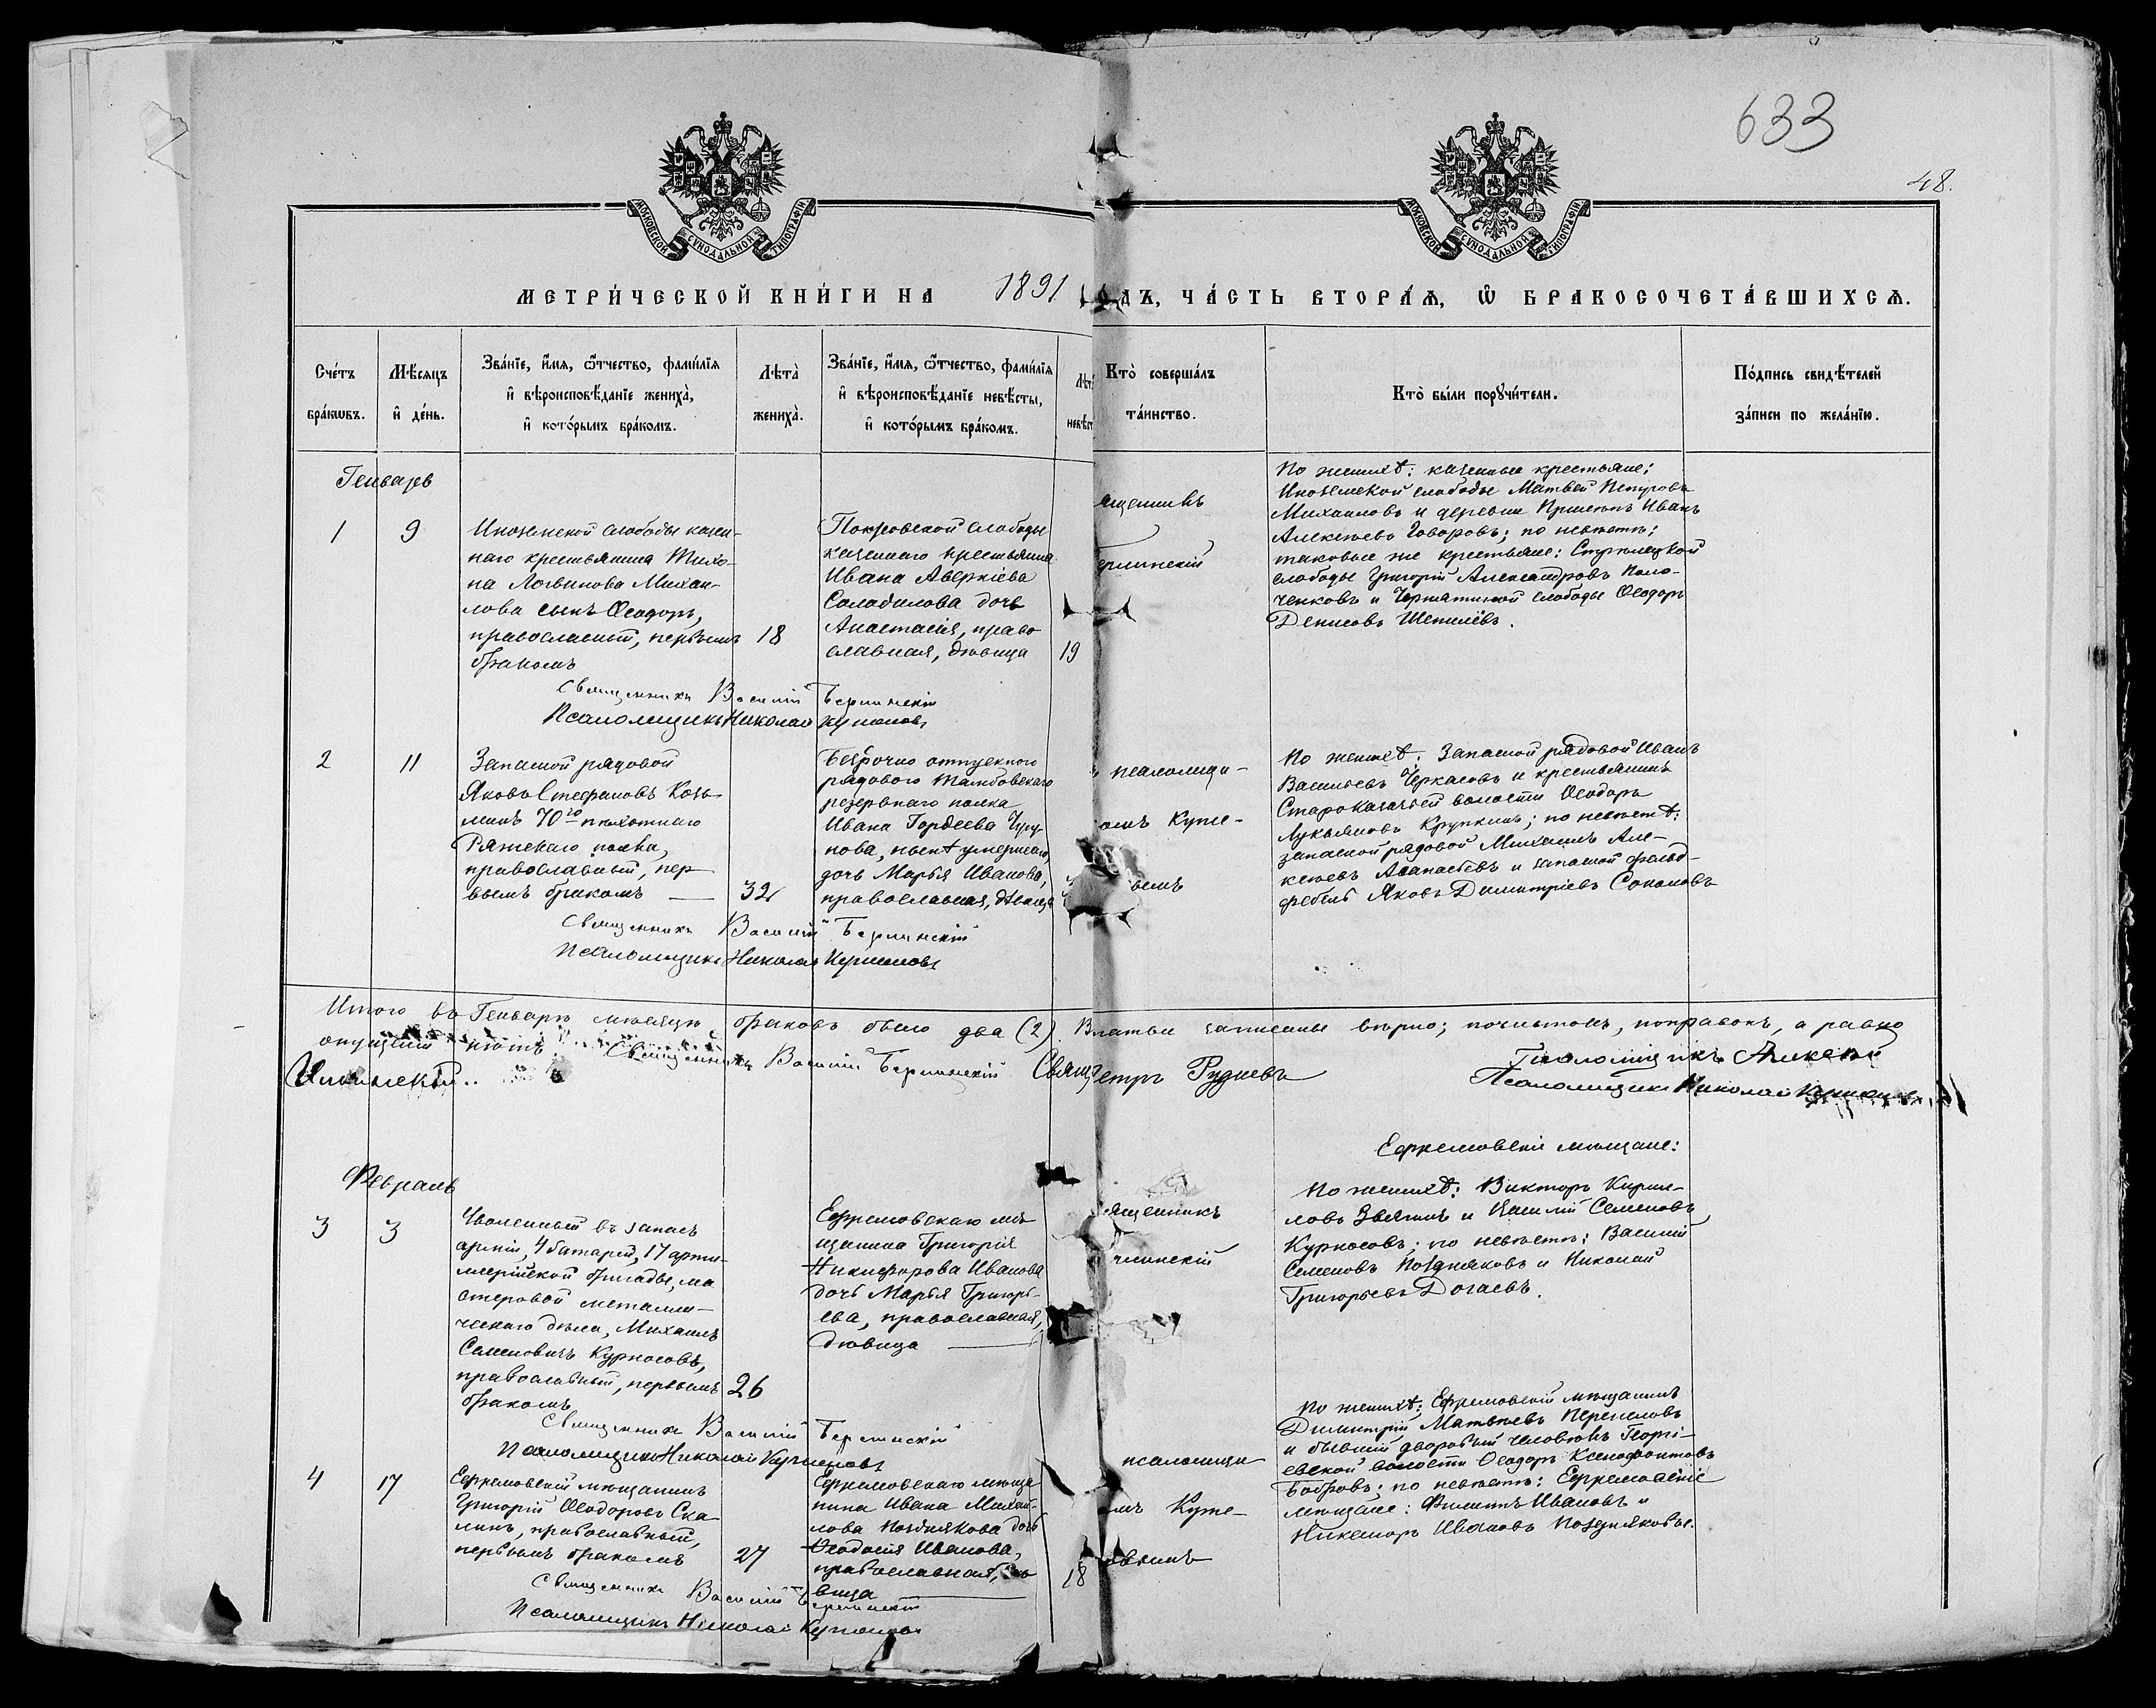 633
48.
МОСКОВСКОЙ СѴНОДАЛЬНОЙ ТИПОГРАФІИ
МОСКОВСКОЙ СѴНОДАЛЬНОЙ ТИПОГРАФІИ
МЕТРИ́ЧЕСКОЙ КНИ́ГИ НА 1891 ОДЪ, ЧА́СТЬ ВТОРА́Ѧ, Ѽ БРАКОСОЧЕТА́ВШИХСѦ.
Сче́тъ
бра́кѡвъ.
Мѣ́сѧцъ
и҆ де́нь.
Зва́нїе, и҆́мѧ, ѻ҆́тчество, фами́лїѧ
и҆ вѣроисповѣ́данїе жениха̀,
и҆ кото́рымъ бра́комъ.
Лѣта̀
жениха̀.
Зва́нїе, и҆́мѧ, ѻ҆́тчество, фами́лїѧ
и҆ вѣроисповѣ́данїе невѣ́сты,
и҆ кото́рымъ бра́комъ.
Лѣт
невѣс
Кто̀ соверша́лъ
та́инство.
Кто̀ бы́ли порꙋчи́тели.
По́дпись свидѣ́телей
за́писи по жела́нїю.
Генварь
1
9
Иноземской слободы казен-
наго крестьянина Тихо-
на Логвинова Михаи-
лова сынъ Ѳеодоръ,
православный, первымъ
бракомъ
18
Покровской слободы
казеннаго крестьянина
Ивана Аверкіева
Солодилова дочь
Анастасія, право
славная, дѣвица
19
ященникъ
ерлинскій
По женихѣ: казенные крестьяне:
Иноземской слободы Матвей Петровъ
Михаиловъ и деревни Ивань
Алексѣевъ Говоровъ; по невѣстѣ:
таковые же крестьяне: Стрѣлецкой
слободы Григорій Александровъ Поло-
ченковъ и слободы Ѳеодоръ
Денисовъ Шепилёвъ.
Священникъ Василій Берлинскій
Псаломщикъ Николай
2
11
Запасной рядовой
Яковъ Стефановъ Козь-
минъ 70го пѣхотнаго
Ряжскаго полка,
православный, пер-
вымъ бракомъ
32
Безсрочно отпускного
рядового Тамбовскаго
резервнаго полка
Ивана Гордеева
нова, нынѣ умершаго,
дочь Марья Иванова,
православная, дѣвица
псаломщи-
омъ Куте-
вымъ
По женихѣ: Запасной рядовой Иванъ
Васильевъ Черкасовъ и крестьянинъ
Староказачьей волости Ѳеодоръ
Лукьяновъ Крупкинъ; по невѣстѣ:
запасной рядовой Михаилъ Але-
ксѣевъ Аѳанасьевъ и запасной фельд-
фебель Яковъ Димитріевъ Соколовъ
Священникъ Василій Берлинскій
Псаломщикъ Николай
Итого въ Генварѣ мѣсяцѣ браковъ было два (2). Статьи записаны вѣрно; почистокъ, поправокъ, а равно
опущеній нѣтъ. Священникъ Василій Берлинскій Свящ етръ Рудневъ
Псаломщикъ Алексѣй
Псаломщикъ Николай
Февраль
3
3
Уволенный въ запасъ
арміи, 4 батареи, 17 арти-
лерійской бригады, ма
стеровой металли-
ческаго дѣла, Михаилъ
Семеновичъ Курносовъ,
православный, первымъ
бракомъ
26
Ефремовскаго мѣ
щанина Григорія
Никифорова Иванова
дочь Марья Григорь-
ева, православная,
дѣвица
ященникъ
рлинскій
Ефремовскіе мѣщане:
По женихѣ: Викторъ Кирил-
ловъ Звягинъ и Василій Семеновъ
Курносовъ; по невѣстѣ: Василій
Семеновъ Поздняковъ и Николай
Григорьевъ Догаевъ.
Священникъ Василій Берлинскій
Псаломщикъ Николай
4
17
Ефремовскій мѣщанинъ
Григорій Ѳеодоровъ Ска-
линъ, православный,
первымъ бракомъ
27
Ефремовскаго мѣща
нина Ивана Михай-
лова Позднякова дочь
Ѳеодосія Иванова,
православная, дѣ
вица
18
псаломщи
омъ Куте-
овымъ
По женихѣ: Ефремовскій мѣщанинъ
Димитрій Матвѣевъ Перепеловъ
и бывшій дворовый человѣкъ Георгі-
евской волости Ѳеодоръ Ксенофонтовъ
Бобровъ; по невѣстѣ: Ефремовскіе
мѣщане: Филиппъ Ивановъ и
Никаноръ Ивановъ Поздняковы.
Священникъ Василій Берлинскій
Псаломщикъ Николай